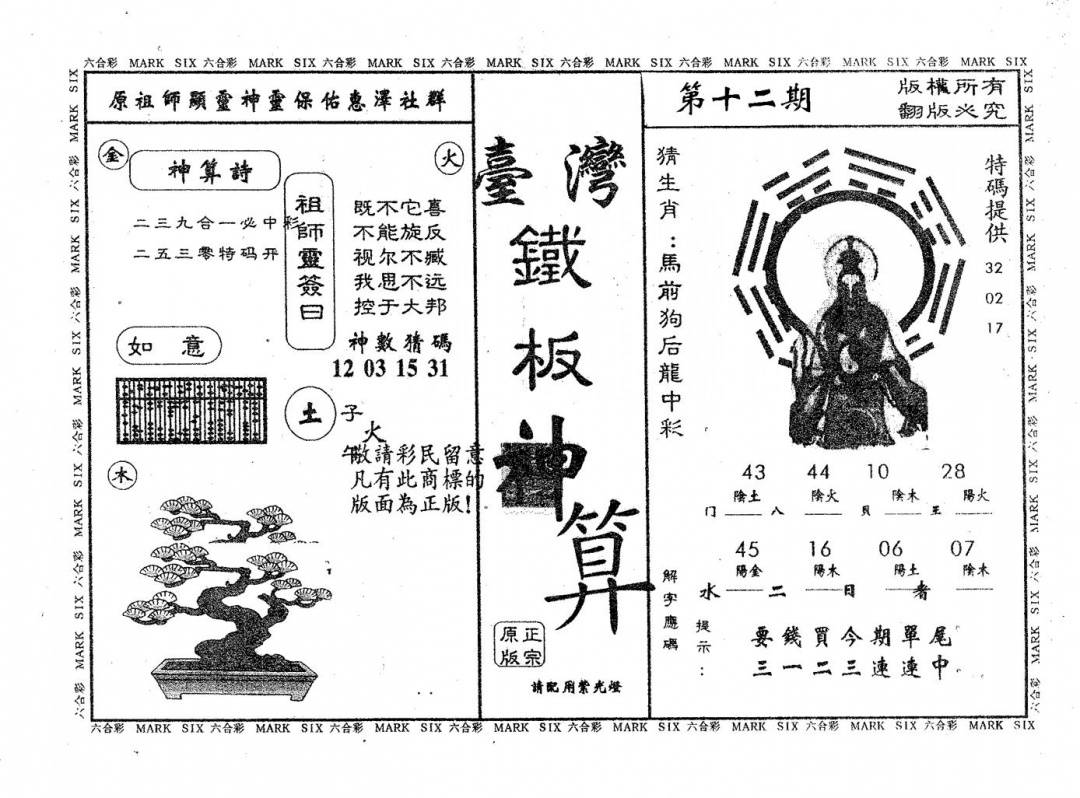 六合彩 MARK SIX 六合彩 MARK SIX 六合彩 MARK SIX 六合彩 MARK SIX 六合彩 MARK SIX 六合彩 MARK SIX 六合彩 MARK SIX 六合彩 MARK SIX
原祖師顯靈神靈保佑惠澤社群
金
神算詩
火
二三九合一必中彩
二五三零特码开
祖師靈簽曰
既不它喜
不能旋反
视尔不臧
我思不远
控于大邦
神數猜碼
12 03 15 31
如意
土
子
火
午
敬請彩民留意
凡有此商標的
版面為正版!
木
臺灣
鐵
板
神
算
正宗
原版
請配用紫光燈
第十二期
版權所有
翻版必究
猜生肖：馬前狗后龍中彩
特碼提供
32
02
17
43 44 10 28
陰土 陰火 陰木 陽火
门 八 貝 王
45 16 06 07
陽金 陽木 陽土 陰木
水 二 日 者
解字應碼
提示：
要錢買今期單尾
三一二三連連中。
六合彩 MARK SIX 六合彩 MARK SIX 六合彩 MARK SIX 六合彩 MARK SIX 六合彩 MARK SIX 六合彩 MARK SIX 六合彩 MARK SIX 六合彩 MARK SIX